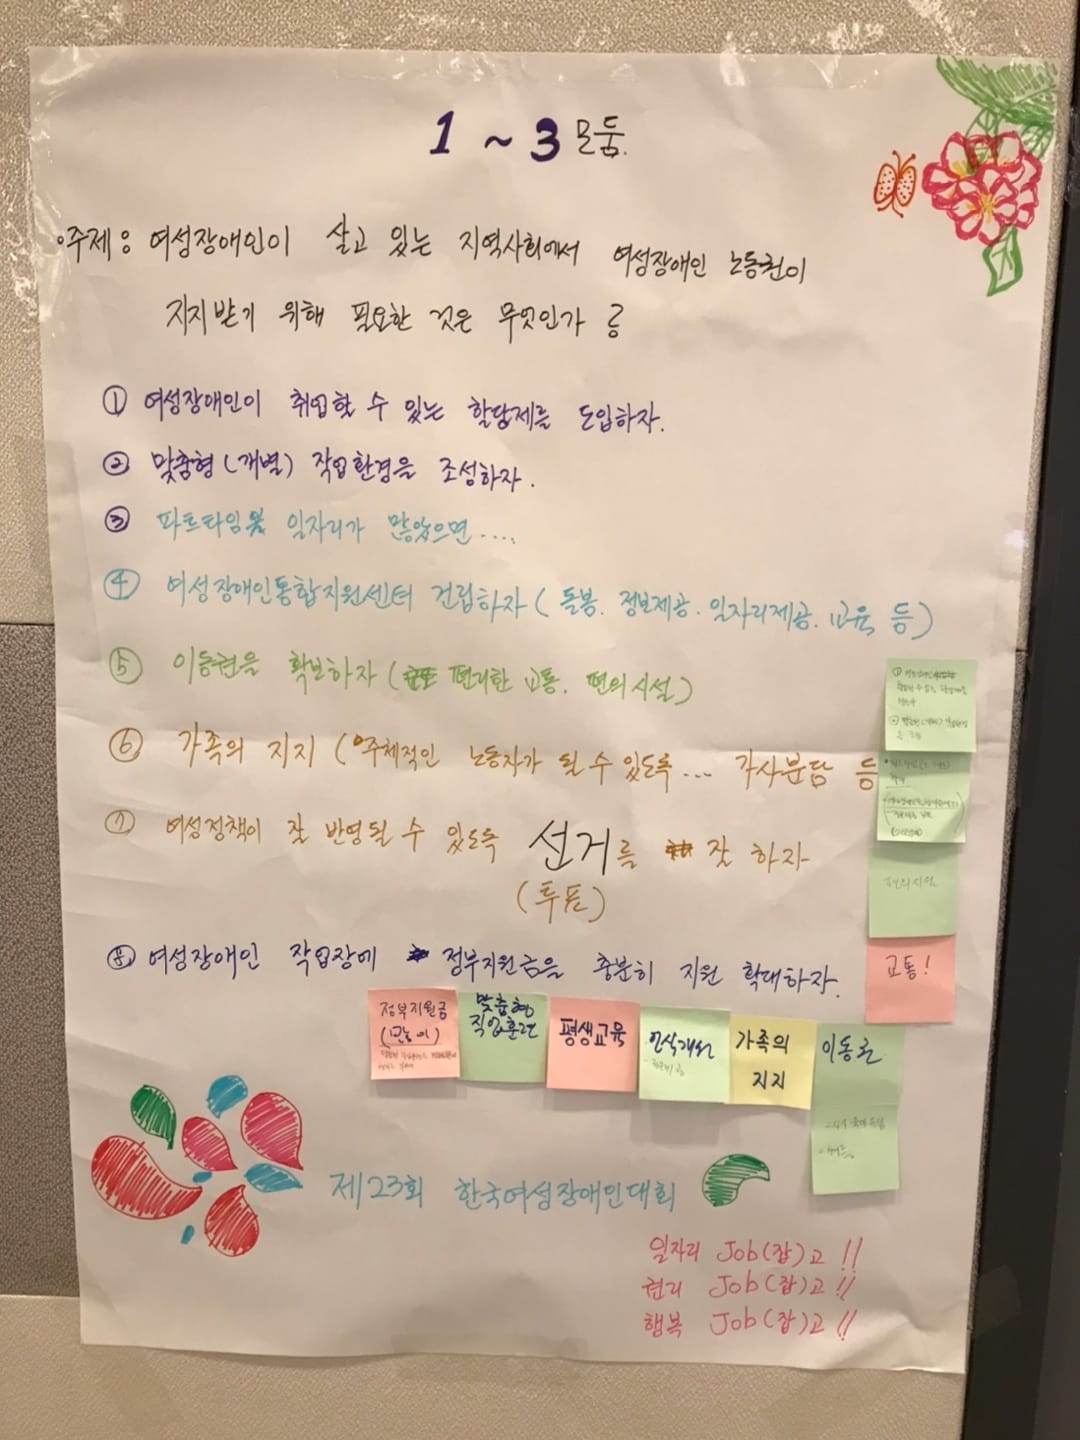 1 ~ 3 모둠.
·주제 : 여성장애인이 살고 있는 지역사회에서 여성장애인 노동권이
지지받기 위해 필요한 것은 무엇인가?
① 여성장애인이 취업할 수 있는 할당제를 도입하자.
② 맞춤형(개별) 작업환경을 조성하자.
③ 파트타임 일자리가 많았으면....
④ 여성장애인통합지원센터 건립하자 (돌봄. 정보제공. 일자리제공. 교육 등)
⑤ 이동권을 확보하자 (편리한 교통. 편의시설)
⑥ 가족의 지지 (주체적인 노동자가 될 수 있도록... 가사분담 등
⑦ 여성정책이 잘 반영될 수 있도록 선거를 잘 하자
(투표)
⑧ 여성장애인 작업장에 정부지원금을 충분히 지원 확대하자.
편의시설
교통!
정부지원금
(많이)
맞춤형
직업훈련
평생교육
인식개선
가족의
지지
이동권
제23회 한국여성장애인대회
일자리 Job(잡)고!!
권리 Job(잡)고!!
행복 Job(잡)고!!